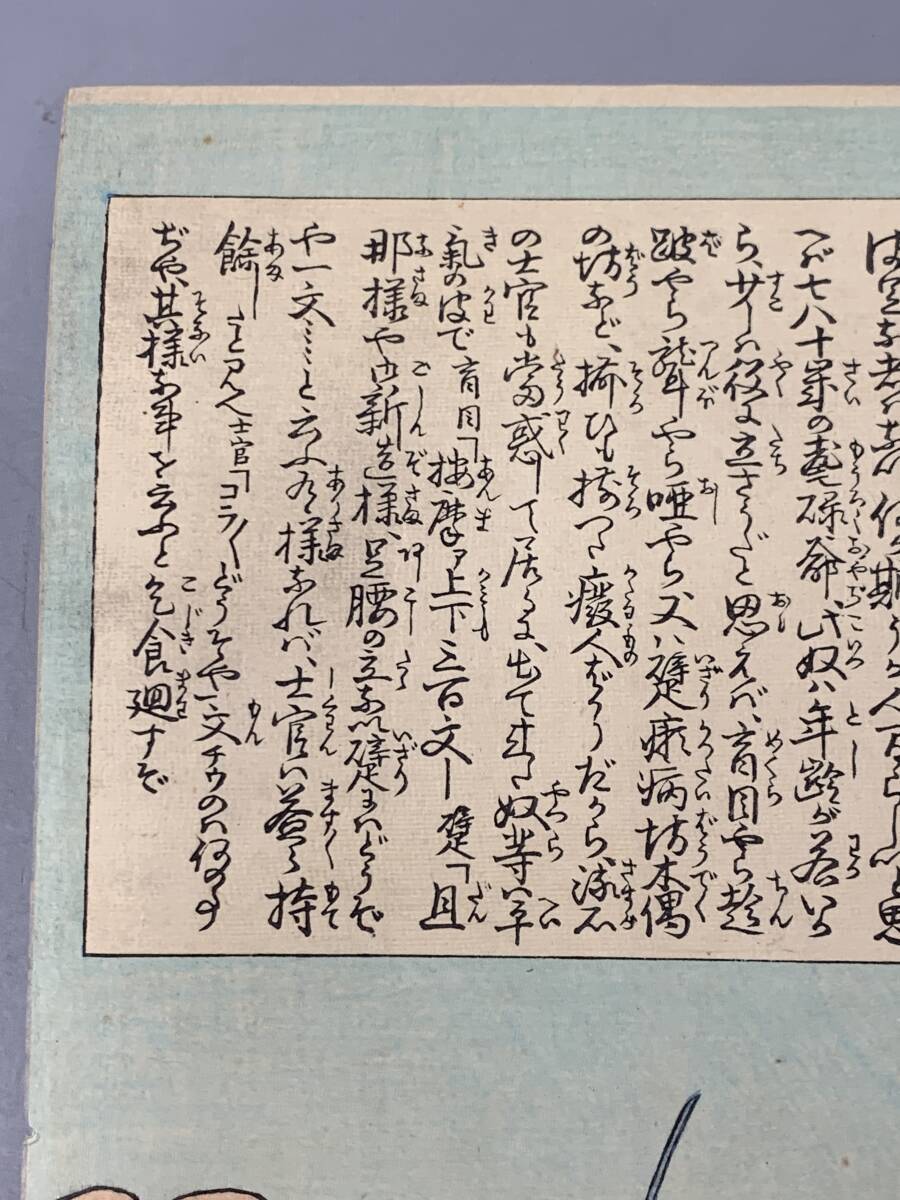 へば七八十歳の耄碌爺、此奴ハ年齢が若いか
ら、サー〳〵役に立さうだと思えバ、盲目やら趁
跛やら聾やら唖やら又ハ躄癩病坊木偶
の坊など、揃ひも揃つた癈人ばかりだから、流石
の士官も當惑して居るに、出て来た奴等ハ平
氣の皮で盲目「按摩ア上下三百文ー躄「旦
那様や御新造様、足腰の立ない躄にハどうぞ
や一文ミミと云ふ有様なれバ、士官ハ益々持
餘したと見え士官「コラ〳〵どうぞや一文チウのハ何の事
ぢや、其様な事を云ふと乞食廻すぞ